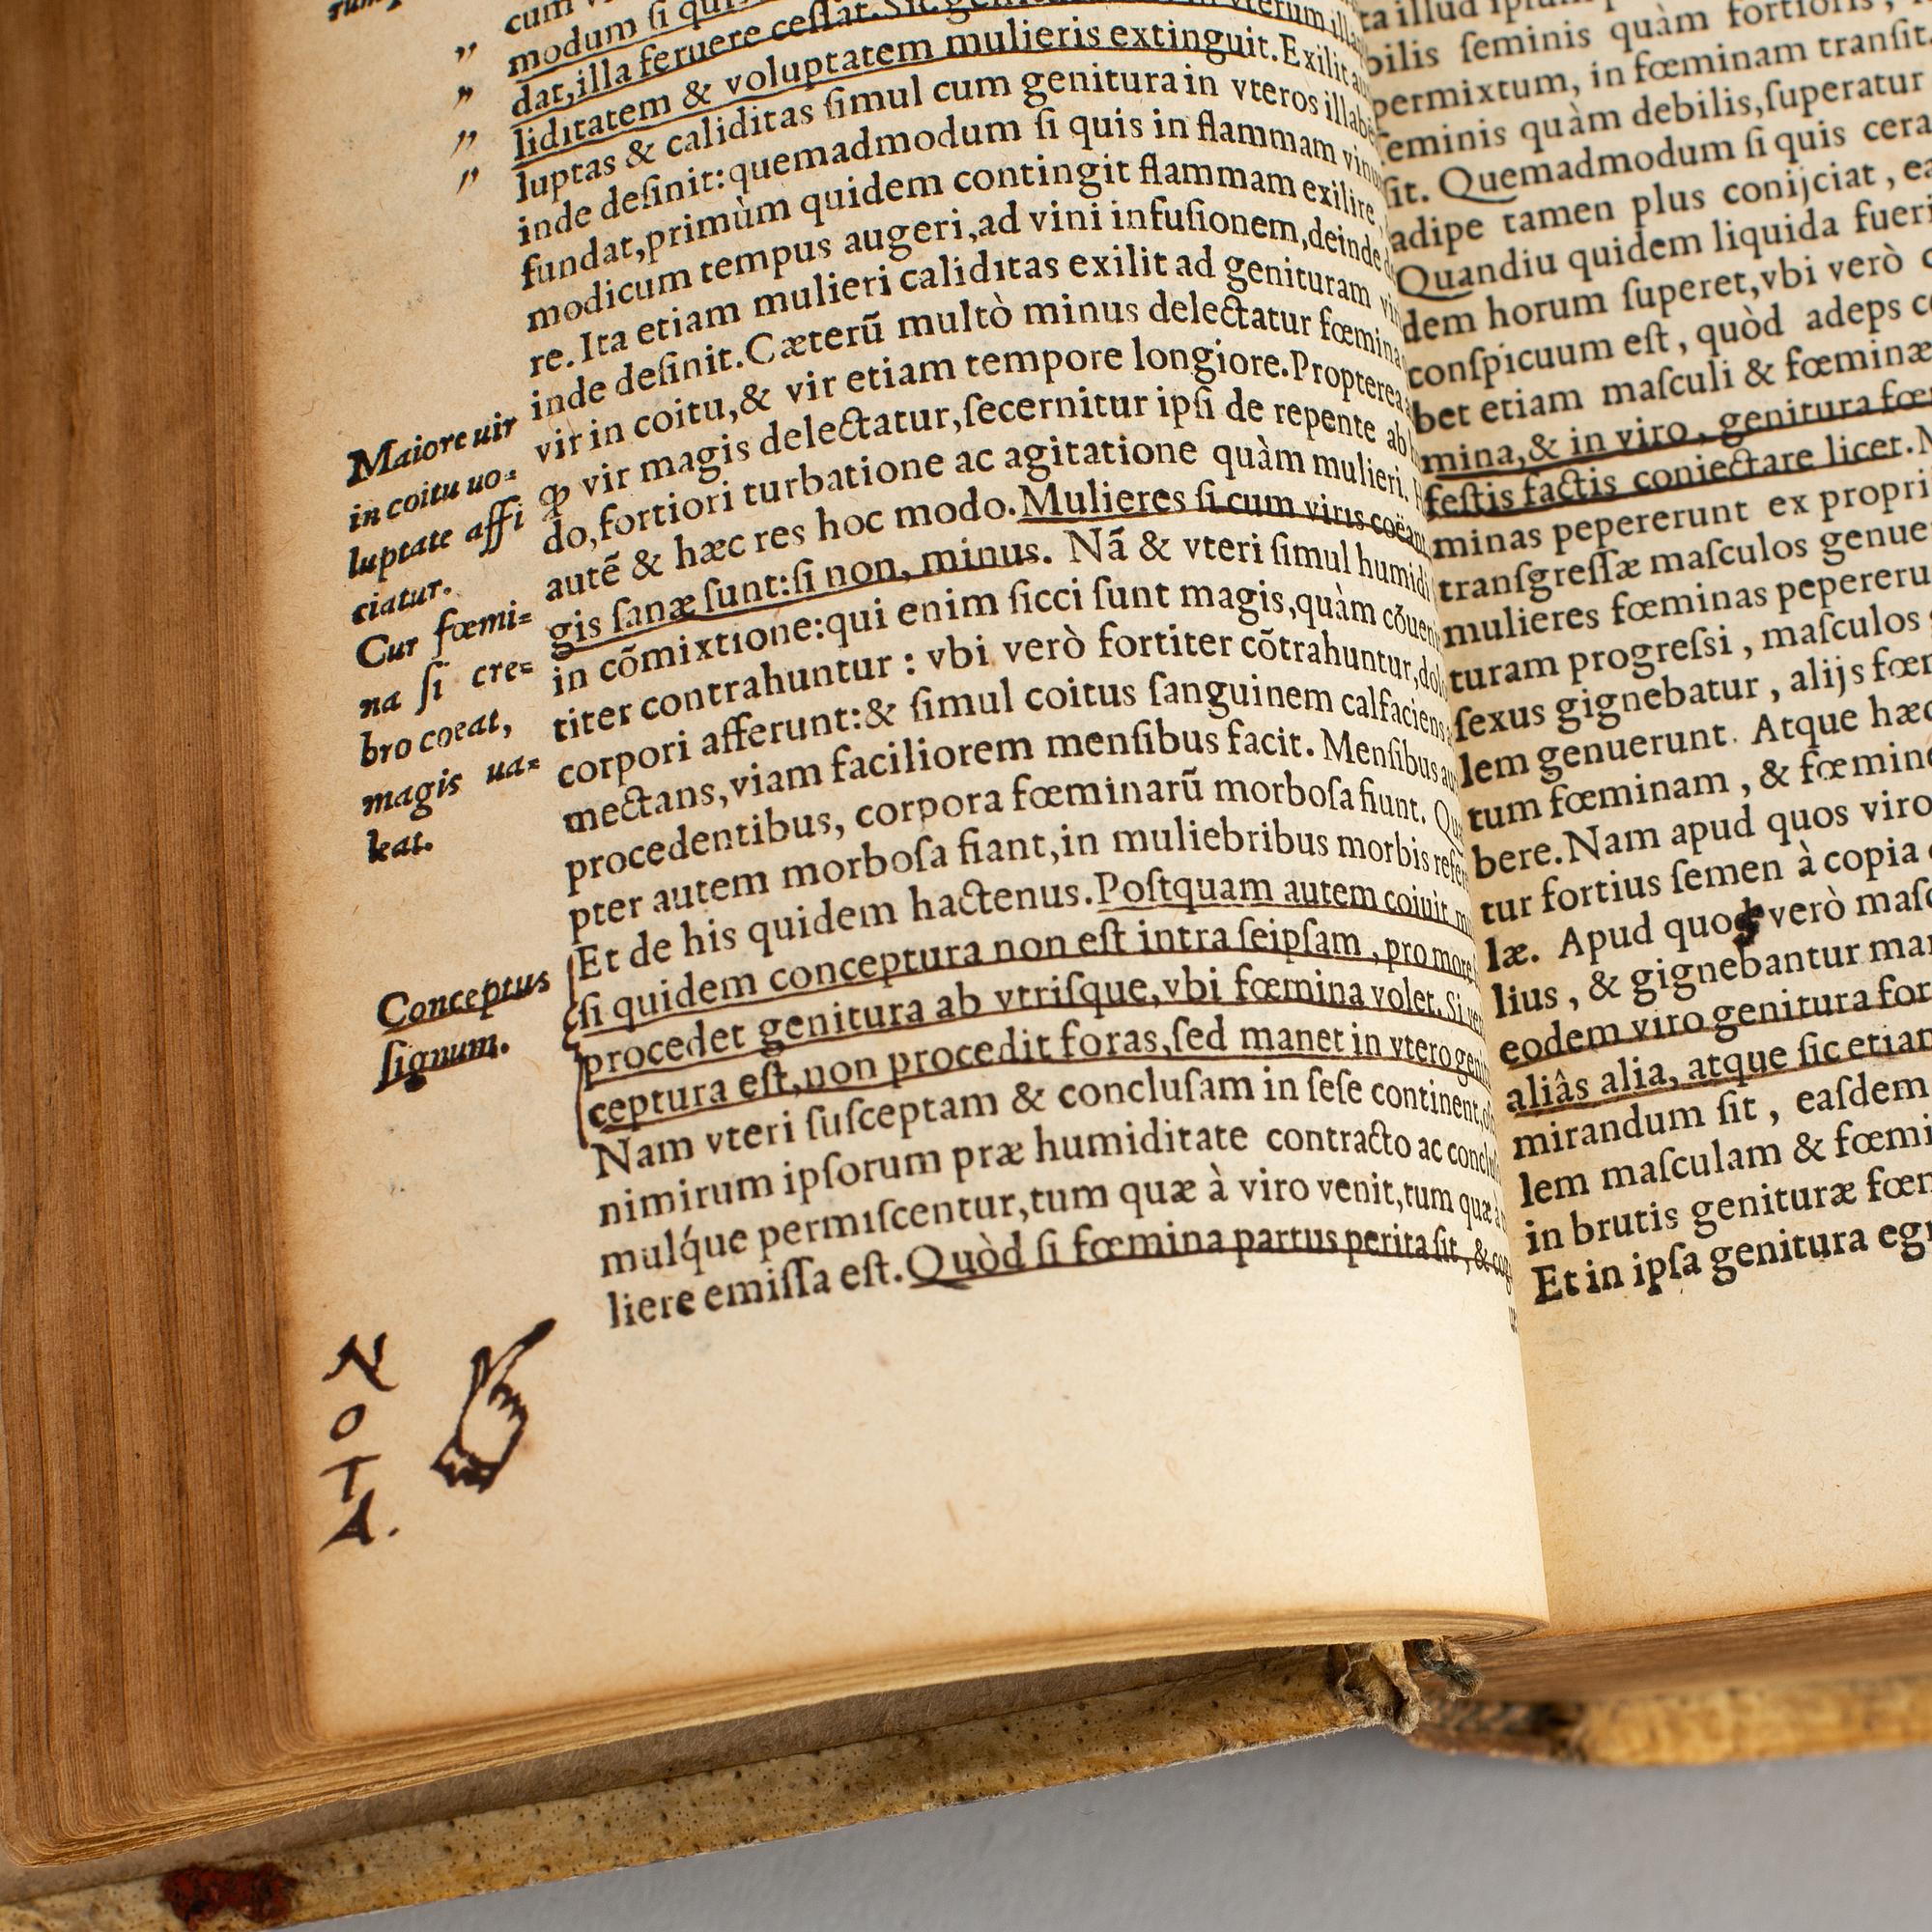 cum
modum ſi
dat,illa feruere ceſſat.
liditatem & voluptatem mulieris extinguit. Exilit
luptas & caliditas ſimul cum genitura in vteros
inde deſinit:quemadmodum ſi quis in flammam
fundat,primùm quidem contingit flammam exilire,
modicum tempus augeri,ad vini infuſionem,deinde
re. Ita etiam mulieri caliditas exilit ad genituram
inde deſinit. Cæterũ multò minus delectatur fœmina
vir in coitu,& vir etiam tempore longiore. Propterea
vir magis delectatur,ſecernitur ipſi de repente ab
do,fortiori turbatione ac agitatione quàm mulieri.
autẽ & hæc res hoc modo. Mulieres ſi cum viris
gis ſanæ ſunt:ſi non, minus. Nã & vteri ſimul
in cõmixtione:qui enim ſicci ſunt magis,quàm
titer contrahuntur : vbi verò fortiter cõtrahuntur,
corpori afferunt:& ſimul coitus ſanguinem
mectans,viam faciliorem menſibus facit. Menſibus
procedentibus, corpora fœminarũ morboſa fiunt.
pter autem morboſa fiant,in muliebribus morbis
Et de his quidem hactenus. Poſtquam autem coiuit
ſi quidem conceptura non eſt intra ſeipſam , pro more
procedet genitura ab vtriſque,vbi fœmina volet. Si
ceptura eſt,non procedit foras,ſed manet in vtero
Nam vteri ſuſceptam & concluſam in ſeſe continent,
nimirum ipſorum præ humiditate contracto ac
mulq́ue permiſcentur,tum quæ à viro venit,tum quæ
liere emiſſa eſt. Quòd ſi fœmina partus perita ſit , &
Maiore uir
in coitu uo=
luptate affi
ciatur.
Cur fœmi=
na ſi cre=
bro coeat,
magis ua=
leat.
Conceptus
ſignum.
N
O
T
A.
bilis ſeminis quàm fortioris
permixtum, in fœminam
ſeminis quàm debilis,ſuperatur
ſit. Quemadmodum ſi quis
adipe tamen plus conijciat ,
Quandiu quidem liquida
dem horum ſuperet,vbi verò
conſpicuum eſt , quòd adeps
bet etiam maſculi & fœminæ
mina,& in viro , genitura
feſtis factis coniectare licet.
minas pepererunt ex
tranſgreſſæ maſculos
mulieres fœminas
turam progreſsi , maſculos
ſexus gignebatur , alijs
lem genuerunt. Atque
tum fœminam , &
bere. Nam apud quos
tur fortius ſemen à copia
læ. Apud quos verò
lius , & gignebantur
eodem viro genitura
aliâs alia, atque ſic
mirandum ſit , eaſdem
lem maſculam &
in brutis genituræ
Et in ipſa genitura